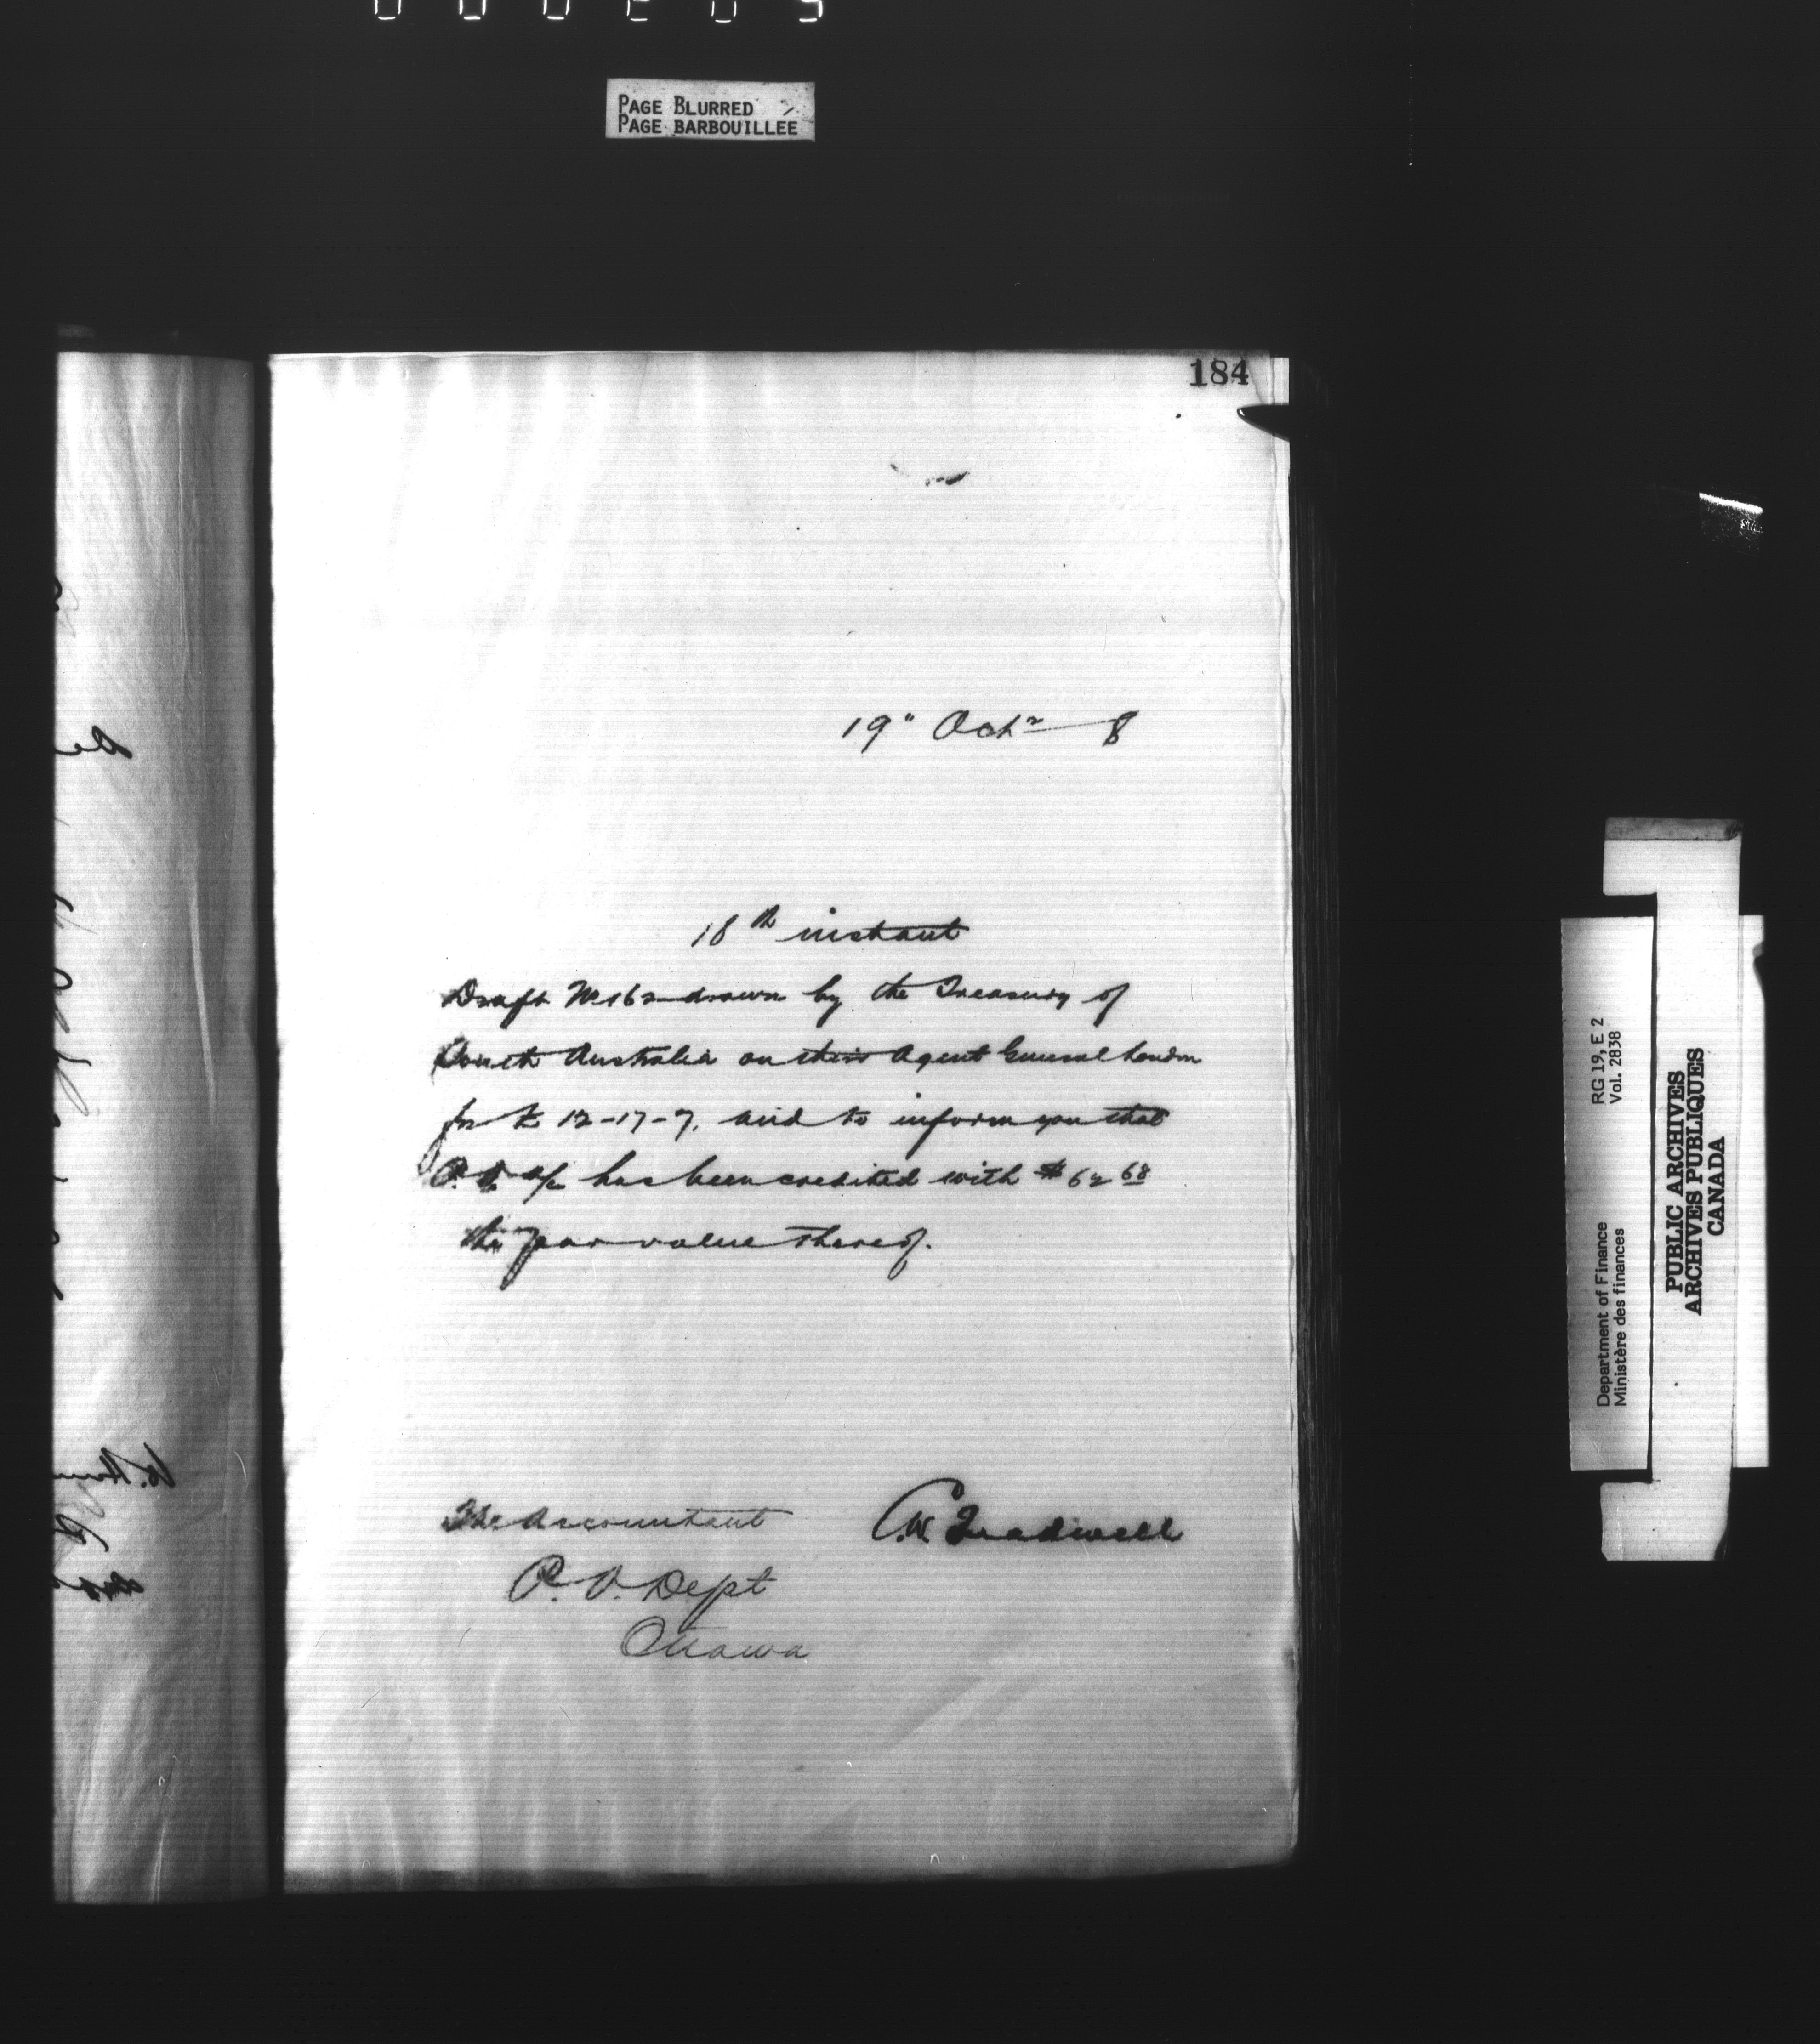 PAGE BLURRED
PAGE BARBOUILLEE
184
19" Octr 8
18th instant
Draft No 162 drawn by the Treasury of
South Australia on their Agent General London
for £ 12-17-7. and to inform you that
P.O. a/c has been credited with $62 68
the par value thereof.
The Accountant
P.O. Dept
Ottawa
C.W. Treadwell
RG 19, E 2
Vol. 2838
Department of Finance
Ministère des finances
PUBLIC ARCHIVES
ARCHIVES PUBLIQUES
CANADA